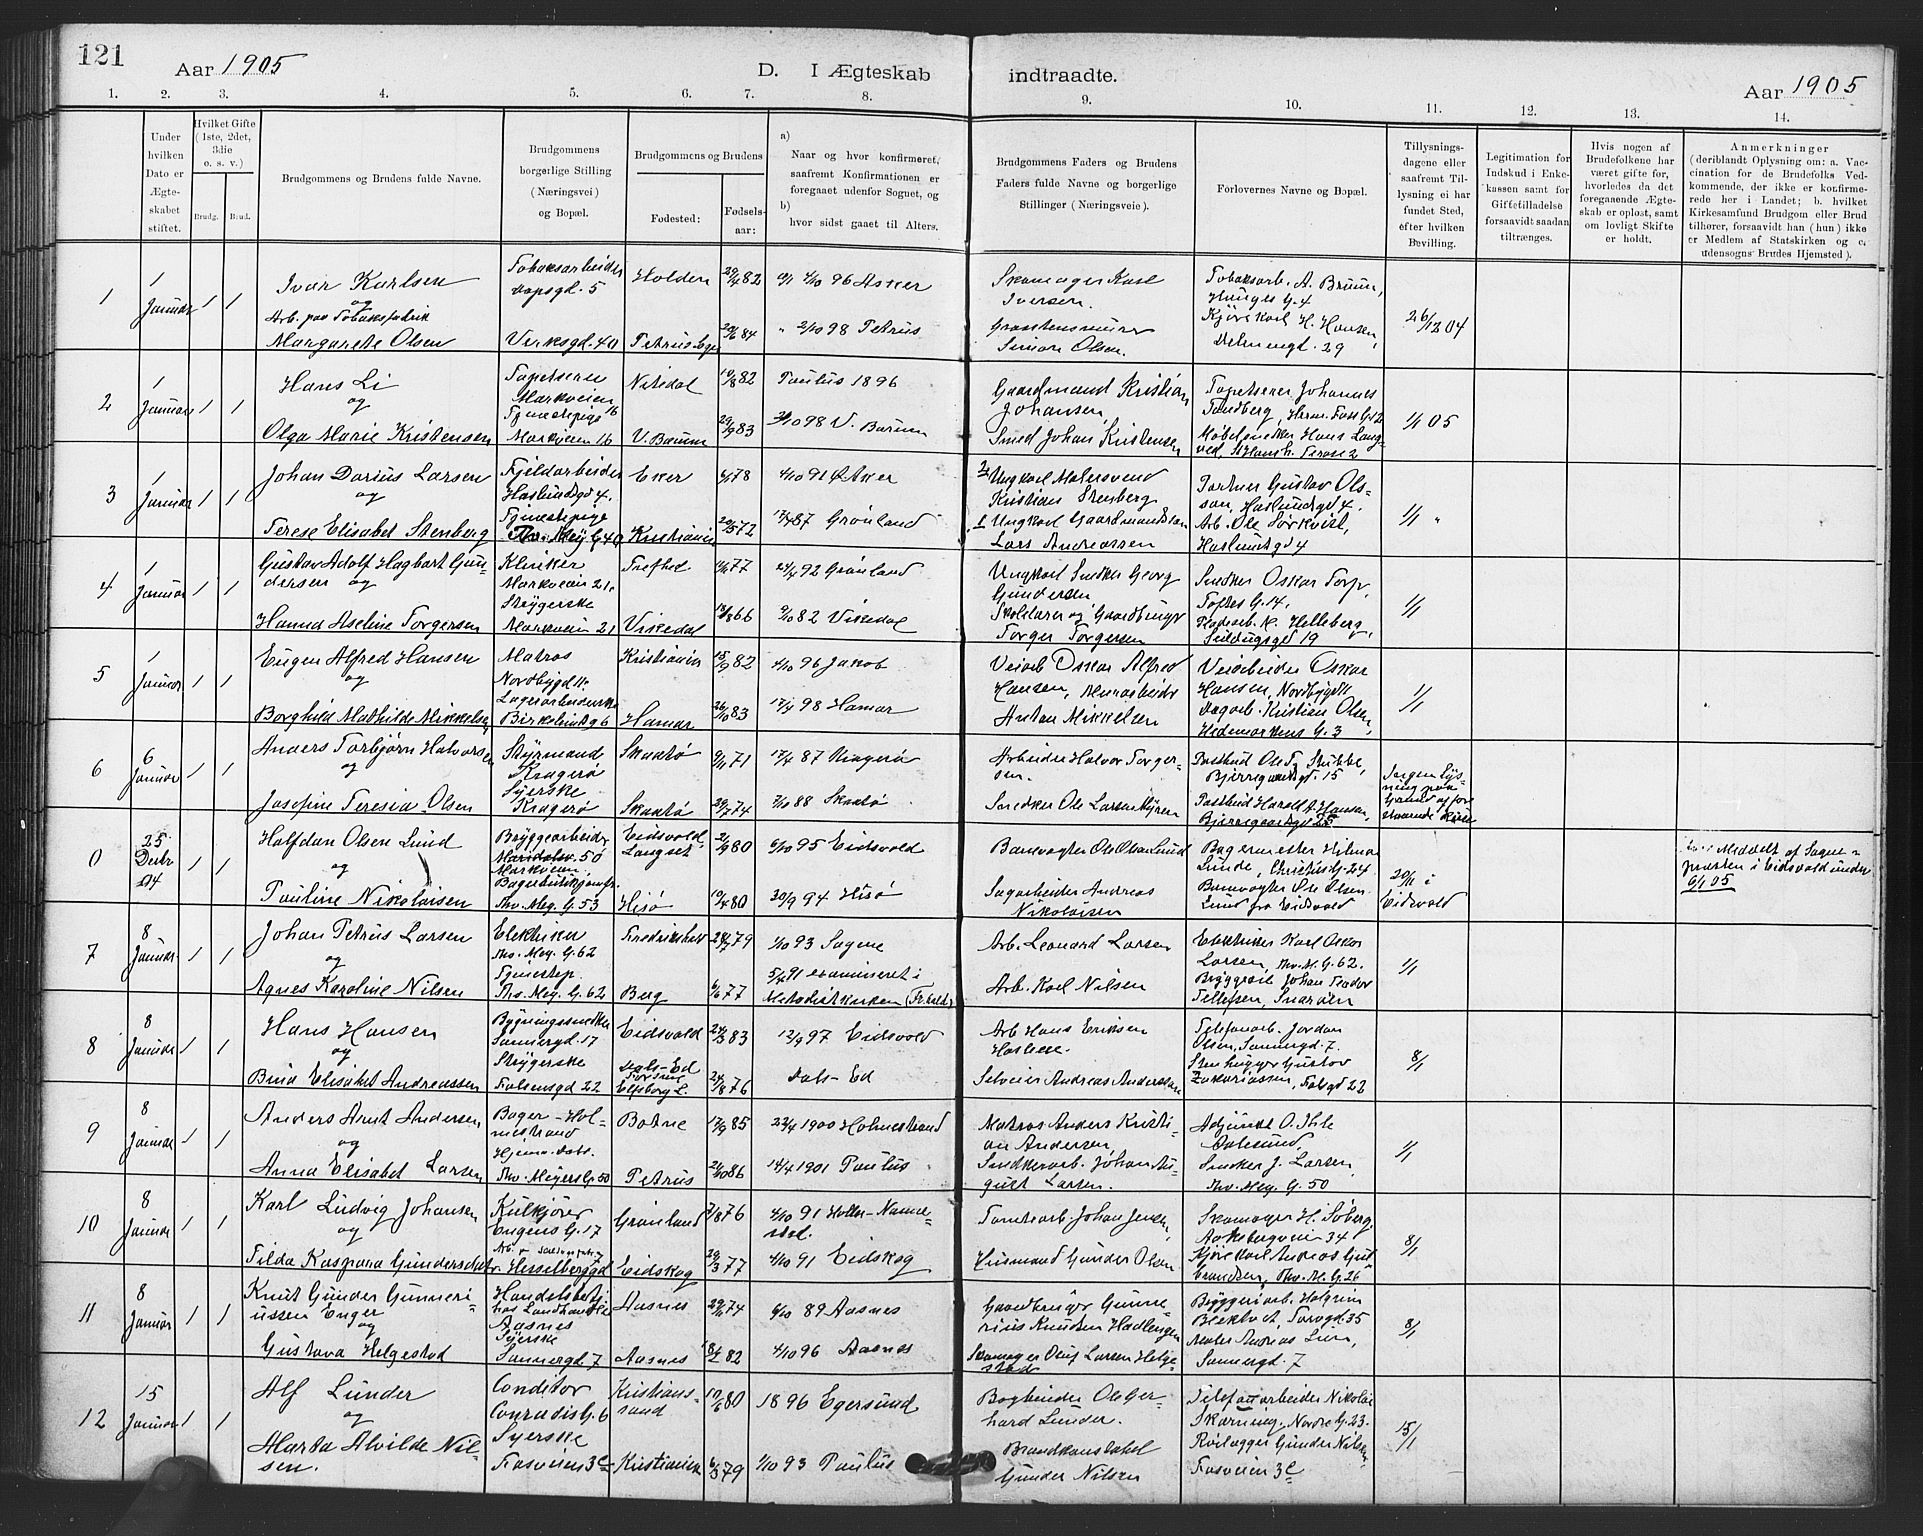 121
Aar 1905
D. I Ægteskab
indtraadte.
Aar 1905
1. 2. 3. 4. 5. 6. 7. 8. 9. 10. 11. 12. 13. 14.
Under hvilken Dato er Ægte-skabet stiftet.
Hvilket Gifte (1ste, 2det, 3die o. s. v.)
Brudg. Brud.
Brudgommens og Brudens fulde Navne.
Brudgommens borgerlige Stilling (Næringsvei) og Bopæl.
Brudgommens og Brudens
Fødested:
Fødsels-aar:
a) Naar og hvor konfirmeret, saafremt Konfirmationen er foregaaet udenfor Sognet, og
b) hvor sidst gaaet til Alters.
Brudgommens Faders og Brudens Faders fulde Navne og borgerlige Stillinger (Næringsveie).
Forlovernes Navne og Bopæl.
Tillysnings-dagene eller saafremt Til-lysning ei har fundet Sted, efter hvilken Bevilling.
Legitimation for Indskud i Enke-kassen samt for Giftetilladelse forsaavidt saadan tiltrænges.
Hvis nogen af Brudefolkene har været gift før, hvorledes da det foregaaende Ægte-skab er opløst, samt om lovligt Skifte er holdt.
Anmerkninger (deriblandt Oplysning om: a. Vac-cination for de Brudefolks Ved-kommende, der ikke er konfirme-rede her i Landet; b. hvilket Kirkesamfund Brudgom eller Brud tilhører, forsaavidt han (hun) ikke er Medlem af Statskirken og c. udensogns Brudes Hjemsted).
1
1 Januar 1 1
Ivar Karlsen
og
Arb. paa Tobaksfabrik
Margarete Olsen
Tobaksarbeider
Verksgd. 40
Holden
Petrus
29/4 82
4/10 96 Asker
2/10 98 Petrus
Skomager Karl
Iversen.
Simon Olsen.
Tobaksarb. A. Bruun,
Hauges G. 4
Kjørekarl H. Hansen,
29
26/12 04
2
1 Januar 1 1
Hans Li
og
Olga Marie Kristensen
Tapetserer
Markveien 16
Tjenestepige
Markveien 16
Nitedal
V. Bærum
19/8 82
29/9 83
Paulus 1896
98 V. Bærum
Gaardmand Kristian
Johansen,
Smed Johan Kristensen
Tapetserer Johannes
Sandberg, Herm. Foss G. 12
Møbelsnedker Hans Lang-
1/1 05
3
1 Januar 1 1
Johan Darius Larsen
og
Terese Elisabet Stenberg
Fjeldarbeider
Haslundsgd 4,
Tjenestepige
Thv. Mey. G. 40
Eker
Kristiania
78
72
4/10 91 Ø. Aker
87 Grønland
Ungkarl Malersvend
Kristian Stenberg
Ungkarl Gaardmandssøn
Lars Andreassen
Portner Gustav Ols-
sen, Haslundsgd 4.
Arb. Ole Sørkvist,
Haslundsgd 4
1/1 "
4
1 Januar 1 1
Gustav Adolf Hagbart Gun-
dersen og
Hanna Aseline Torgersen
Markveien 21.
Strygerske
Markveien 21
Vikedal
77
66
92 Grønland
82 Vikedal
Ungkarl Snedker Georg
Gundersen
Skolelærer og Gaardbruger
Torger Torgersen
Snedker Oskar Torp,
Toftes G. 14,
K. Helleberg,
Seildugsgd 19
1/1
5
1 Januar 1 1
Eugen Alfred Hansen
og
Borghild Mathilde Mikkelsen
Matros
Nordbygd 11.
Lagerarbeiderske
Birkelundsg 6
Kristiania
Hamar
15/9 82
26/10 83
4/10 96 Jakob
98 Hamar
Veiarb Oskar Alfred
Hansen, Murarbeider
Anton Mikkelsen
Veiarbeider Oskar
Hansen, Nordbygd 11
Kristian Olsen,
Hedemarkens G. 3
1/1
6
6 Januar 1 1
Anders Torbjørn Halvorsen
og
Josefine Teresia Olsen
Styrmand
Kragerø
Syerske
Kragerø
Skaatø
Skaatø
9/11 71
29/7 74
17/4 87 Kragerø
88 Skaatø
Arbeider Halvor Torger-
sen.
Snedker Ole Larsen
Postbud Ole Stubbe,
Bjerregaardsgd. 15
Postbud Harald A. Hansen,
Bjerregaardsgd 25
Ingen Lys-
ning paa
Grund af fore
0
25 Decbr 04 1 1
Halfdan Olsen Lund
og
Pauline Nikolaisen
Bryggearbeider
Maridalsv. 50
Markveien.
Thv. Mey. G. 53
Eidsvold
Langset
Hisø
21/9 80
19/4 80
95 Eidsvold
30/9 94 Hisø
Banevogter Ole Olsen Lund
Sagarbeider Andreas
Nikolaisen
Bagermester Hilmar
Lunde, Christies G. 24
Banevogter Ole Olsen
Lund fra Eidsvold
20/11 i
Eidsvold
Meddelt af Sogne-
præsten i Eidsvold under
6/1 05
7
8 Januar 1 1
Johan Petrus Larsen
og
Agnes Karoline Nilsen
Elektriker
Thv. Mey. G. 62
Tjenestep.
Thv. Mey. G. 62
Berg
79
77
1/10 93 Sagene
5/4 91 examineret i
Metodistkirken (Fr.hald)
Arb. Leonard Larsen
Arb. Karl Nilsen
Elektriker Karl Oskar
Larsen, Thv. M. G. 62.
Johan Teodor
Tellefsen, Snarøen
1/1
8
8 Januar 1 1
Hans Hansen
og
Elisabet Andreassen
Bygningssnedker
Sannergd. 17
Strygerske
Falsensgd 22
Eidsvold
Dals-Ed
Elfsborg L.
83
24/8 76
12/9 97 Eidsvold
Dals-Ed
Arb Hans Eriksen
Selveier Andreas Andersson
Telefonarb. Jordan
Olsen, Sannergd. 7.
Stenhugger Gustav
Zakariassen, 22
8/1
9
8 Januar 1 1
Anders Arnt Andersen
og
Anna Elisabet Larsen
Bager - Hol-
mestrand
Thv. Meyers G. 50
Botne
Petrus
17/9 85
86
22/4 1900 Holmestrand
14/4 1901 Paulus
Matros Anders Kristi-
an Andersen,
Snedkerarb. Johan Au-
gust Larsen.
Adjunkt O. Ihle
Aalesund,
Snedker J. Larsen,
Thv. Mey. G. 50
1/1
10
8 Januar 1 1
Karl Ludvig Johansen
og
Tilda Kaspara Gundersdatter
Kulkjører
Eugens G. 17
Hesselbergsgd
Grønland
Eidskog
76
29/3 77
4/10 91
4/10 91 Eidskog
Tomtearb Johan Jensen,
Husmand Gunder Olsen
Skomager H. Søberg,
Aakebergveien 34
Kjørekarl Andreas
Thv. M. G. 26
8/1
11
8 Januar 1 1
Knut Gunder Gunneri-
ussen Enger
og
Gustava Helgestad
Handelsbetj.
Aasnes
Syerske
Sannergd. 7
Aasnes
Aasnes
74
82
89 Aasnes
4/10 96 Aasnes
Gaardbruger Gunne-
rius Knudsen
Skomager Oluf Larsen Helge-
stad
Bryggeriarb. Halgrim
Torvgd. 35
Maler Andreas Lien,
Sannergd. 7
8/1
12
15 Januar 1 1
Alf Lunder
og
Marta Alvilde Nil-
sen.
Conditor
Conradis G. 6
Syerske
Fosveien 3c
Kristians-
sand
Kristiania
80
79
1896 Egersund
1/10 93 Paulus
Bogbinder Ole Ger-
hard Lunder.
Brandkonstabel
Gunder Nilsen
Telefonarbeider Nikolai
Nordre G. 23.
Gunder Nilsen
Fosveien 3c
15/1